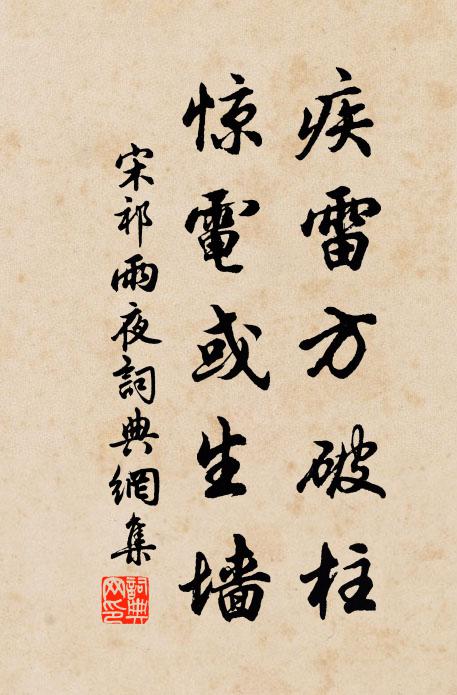 疾雷方破柱
惊電或生墙
宋祁雨夜詞典網集
詞典網印